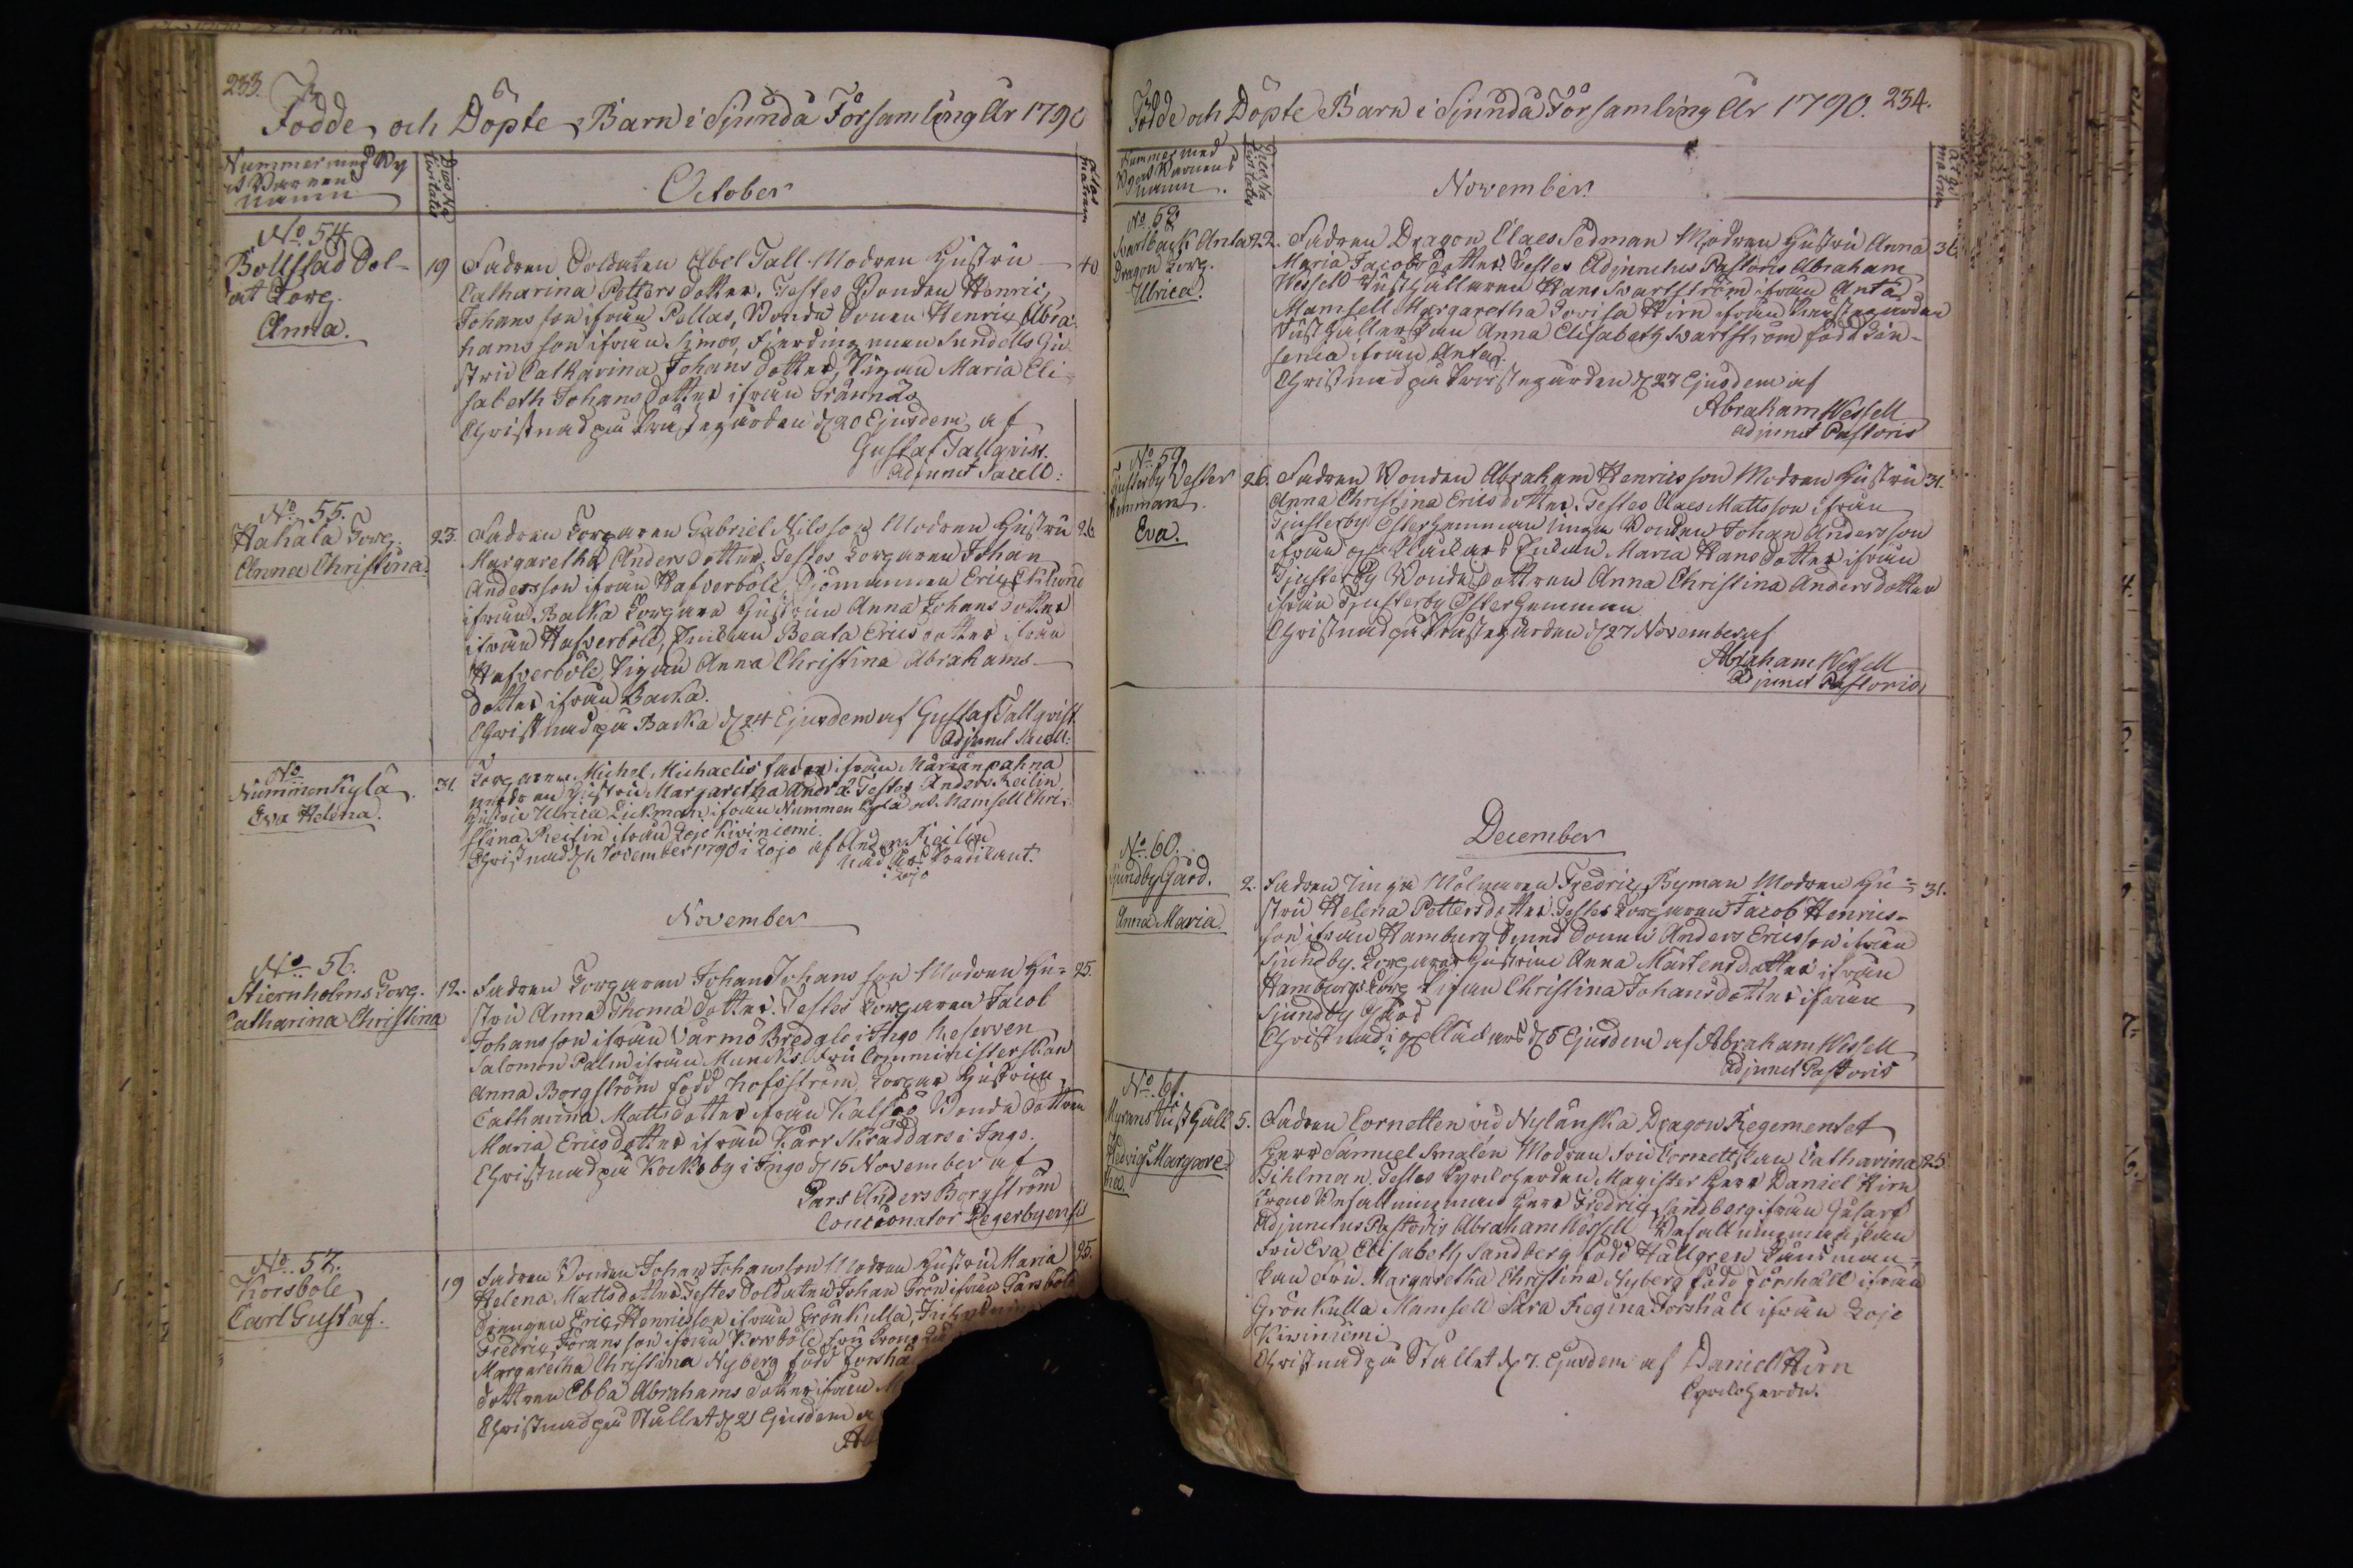 233.
Födde och Döpte Barn i Sjundå Församling År 1790
Nummer med By
Barnens
Namn
Dies Na
tivitatis
October
Ætas
matrum
No. 54
Böllstad Sol-
dat Torp.
Anna.
19 Fadren Soldaten Abel Tall. Modren Hustru 40
Catharina Petters dotter. Testes Bonden Henric
Johans son ifrån Pellas, Bonde Sonen Henric Abra-
hams son ifrån, Fjerdingsman Sundells Hu
stru Catharina Johans dotter, Pigan Maria Eli-
sabeth Johans dotter ifrån Grännäs
Christnad på Prästegården d. 20 Ejusdem af
Gustaf Tallqvist.
Adjunct Sacell:
No. 55.
Hahala Torp.
Anna Christina.
23. Fadren Torparen Gabriel Nilsson Modren Hustru 26
Margaretha Anders dotter, Testes Torparen Johan
Andersson ifrån Hafverböle, Eric
ifrån Backa Torpare Hustrun Anna Johans dotter
ifrån Hafverböle, Beata Erics dotter ifrån
Hafverböle, Pigan Anna Christina Abrahams
dotter ifrån Backa.
Christnad på Backa d. 24 Ejusdem af Gustaf Tallqvist
Adjunct Sacell:
No
Nummenkylä
Eva Helena.
31. Torparen Michel Michaelis ifrån
modren Hustru Margaretha Testes Anders Reilin
Hustru Ulrica Lukman ifrån Nummenkylä och Mamsell Chri-
stina Reilin ifrån Lojo Kiviniemi.
Christnad d. November 1790 i Lojo af Anders Reilin
Prædicant.
i Lojo
November
No. 56.
Stiernholms Torp.
Catharina Christina
12. Fadren Torparen Johan Johans son Modren Hu- 25.
stru Anna Thomæ dotter. Testes Torparen Jacob
Johansson ifrån i Ingo
Salomon Palin ifrån Muncks. Fru Comministerskan
Anna Borgström född Hofström, Torpar Hustrun
Catharina Mattsdotter ifrån Bonde dottren
Maria Ericsdotter ifrån Kärr Skräddars i Ingo.
Christnad på Kocksby i Ingo d. 15 November af
Lars Anders Borgström
Concionator Degerbyensis
No. 57.
Korsböle
Carl Gustaf.
19 Fadren Bonden Johan Johansson Modren Hustru Maria 25.
Helena Mattsdotter. Testes Soldaten Johan Grön ifrån
Drengen Eric Henricsson ifrån Grönkulla,
Fredric Göransson ifrån Korsböle, Fru
Margaretha Christina Nyberg född
dottren Ebba Abrahams dotter ifrån
Christnad på Stället d. 21 Ejusdem
Födde och Döpte Barn i Sjundå Församling År 1790. 234.
Nummer med
Byns Barnens
namn.
Dies Na
tivitatis
November.
Ætas
matrum
No. 58
Svartback Anta
Dragon Torp.
Ulrica.
22. Fadren Dragon Claes Sedman Modren Hustru Anna 36
Maria Jacobs dotter. Testes Adjunctus Pastoris Abraham
Wessell Rusthållaren Hans Svartström ifrån Anta,
Mamsell Margaretha Lovisa Hirn ifrån Prästegården
Rusthållarskan Anna Elisabeth Svartström född
ifrån Anta.
Christnad på Prästegården d. 27 Ejusdem af
Abraham Wessell
adjunct Pastoris
No. 59
Tjusterby Vester
hemman.
Eva.
26. Fadren Bonden Abraham Henricsson Modren Hustru 31.
Anna Christina Ericsdotter. Testes Claes Mattsson ifrån
Tjusterby Österhemman unga Bonden Johan Andersson
ifrån Maria Hansdotter ifrån
Tjusterby Bonde dottren Anna Christina Andersdotter
ifrån Tjusterby Österhemman
Christnad på Prästegården d. 27 November af
Abraham Wessell
Adjunct Pastoris
December
No. 60.
Sjundby Gård.
Anna Maria.
2. Fadren unga Mölnaren Fredric Byman Modren Hu- 31.
stru Helena Pettersdotter. Testes Torparen Jacob Henrics-
son ifrån Hamburg Anders Ericsson ifrån
Sjundby. Torpare Hustrun Anna Mårtensdotter ifrån
Hamburgs Torp Pigan Christina Johansdotter ifrån
Sjundby Gård
Christnad i d. 5 Ejusdem af Abraham Wessell
Adjunct Pastoris
No. 61.
Myrans Rusthåll
Hedvig Margare-
tha.
5. Fadren Cornetten vid Nylänska Dragon Regementet
Herr Samuel Smalén Modren Fru Cornettskan Catharina 25
Tihlman. Testes Magister Herr Daniel Hirn
Crono Befallningsman Herr Fredric Sandberg ifrån
Adjunctus Pastoris Abraham Wessell Befallningsmanskan
Fru Eva Elisabeth Sandberg född Hällgren Länsman-
skan Fru Margaretha Christina Nyberg född Forshäll ifrån
Grönkulla Mamsell Sara Regina Forshäll ifrån Lojo
Kiviniemi
Christnad på Stället d. 7. Ejusdem af Daniel Hirn